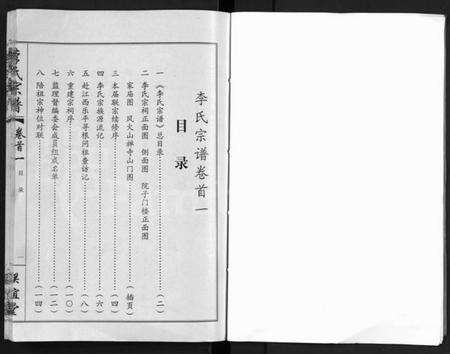 李氏宗谱卷首一
目录
一 《李氏宗谱》总目录……(二)
二 李氏宗祠正面图 侧面图 院子门楼正面图
家庙图 凤火山禅寺山门图……(插页)
三 本届联宗续修序……(四)
四 李氏宗族源流记……(六)
五 赴江西乐平寻根问祖查访记……(八)
六 重建宗祠序……(一〇)
七 监理督编委会成员组成名单……(一二)
八 陪祖宗神位对联……(一四)
氏宗谱
卷首一
目录